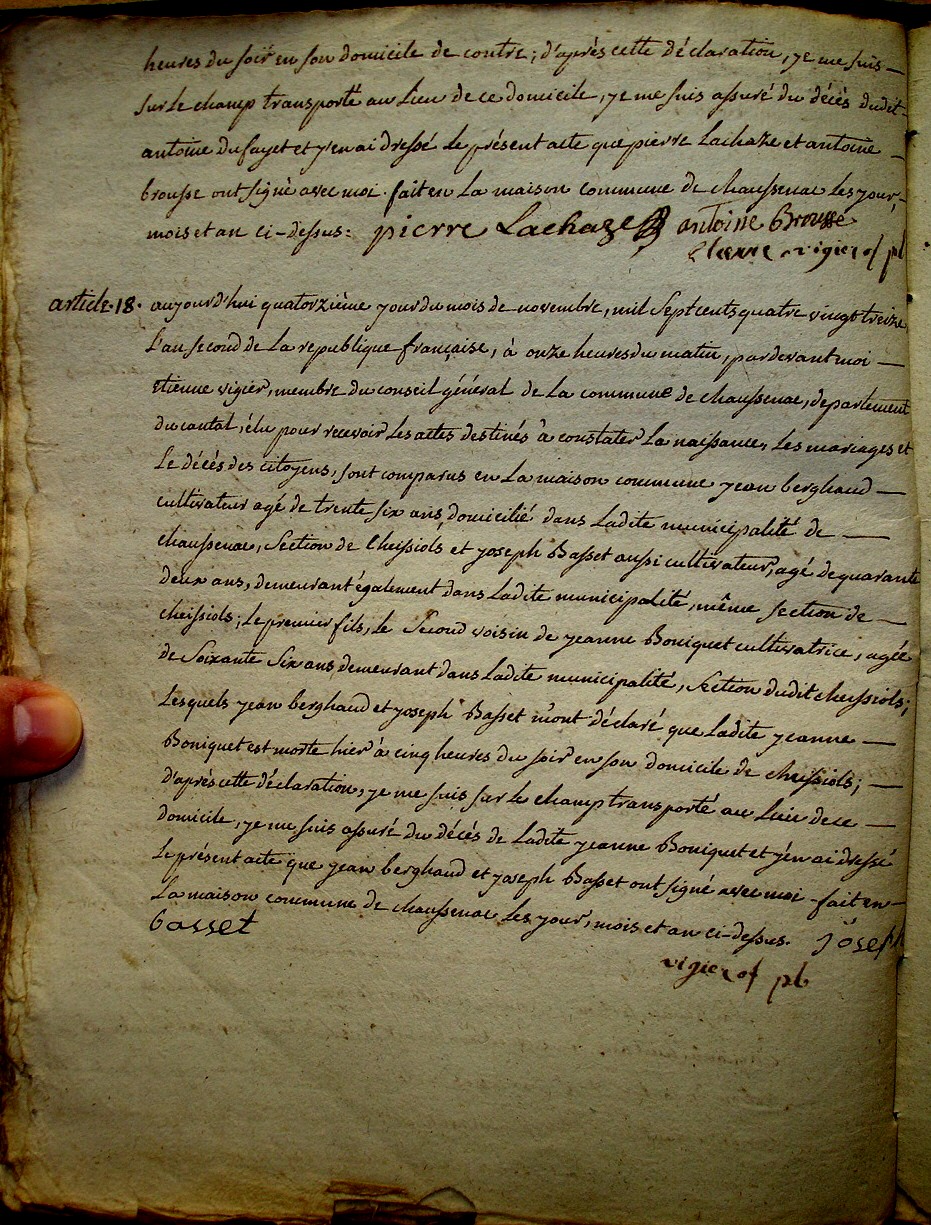 heures du soir en son domicile de contre ; d'après cette déclaration, je me suis —
sur le champ transporté au lieu de ce domicile, je me suis assuré du décès dudit —
antoine dufayet et j'en ai dressé le présent acte que pierre Lachaze et antoine —
brousse ont signé avec moi. fait en La maison commune de chaussenac les jour,
mois et an ci-dessus : pierre Lachaze antoine Brousse
etienne vigier of pb
article. 18. aujourd'hui quatorzième jour du mois de novembre, mil Sept cents quatre vingt treize
L'an second de La republique française, à onze heures du matin, pardevant moi —
etienne vigier, membre du conseil général de La commune de chaussenac, departement
du cantal, élu pour recevoir Les actes destinés à constater La naissance, Les mariages et
Le décès des citoyens, sont comparus en La maison commune jean berghaud —
cultivateur agé de trente six ans, domicilié dans Ladite municipalité de —
chaussenac, Section de Cheissiols et joseph Basset aussi cultivateur, agé de quarante
deux ans, demeurant également dans Ladite municipalité, même section de —
cheissiols ; Le premier fils, Le Second voisin de jeanne Boniquet cultivatrice, agée
de Soixante Six ans demeurant dans Ladite municipalité, Section dudit cheissiols ;
Lesquels jean berghaud et joseph Basset m'ont déclaré que Ladite jeanne —
Boniquet est morte hier à cinq heures du soir en son domicile de cheissiols ; —
d'après cette déclaration, je me suis sur le champ transporté au Lieu de ce —
domicile, je me suis assuré du décès de Ladite jeanne Boniquet et j'en ai dressé
Le présent acte que jean berghaud et joseph Basset ont signé avec moi - fait en —
La maison commune de chaussenac Les jour, mois et an ci-dessus. joseph
basset
vigier of pb